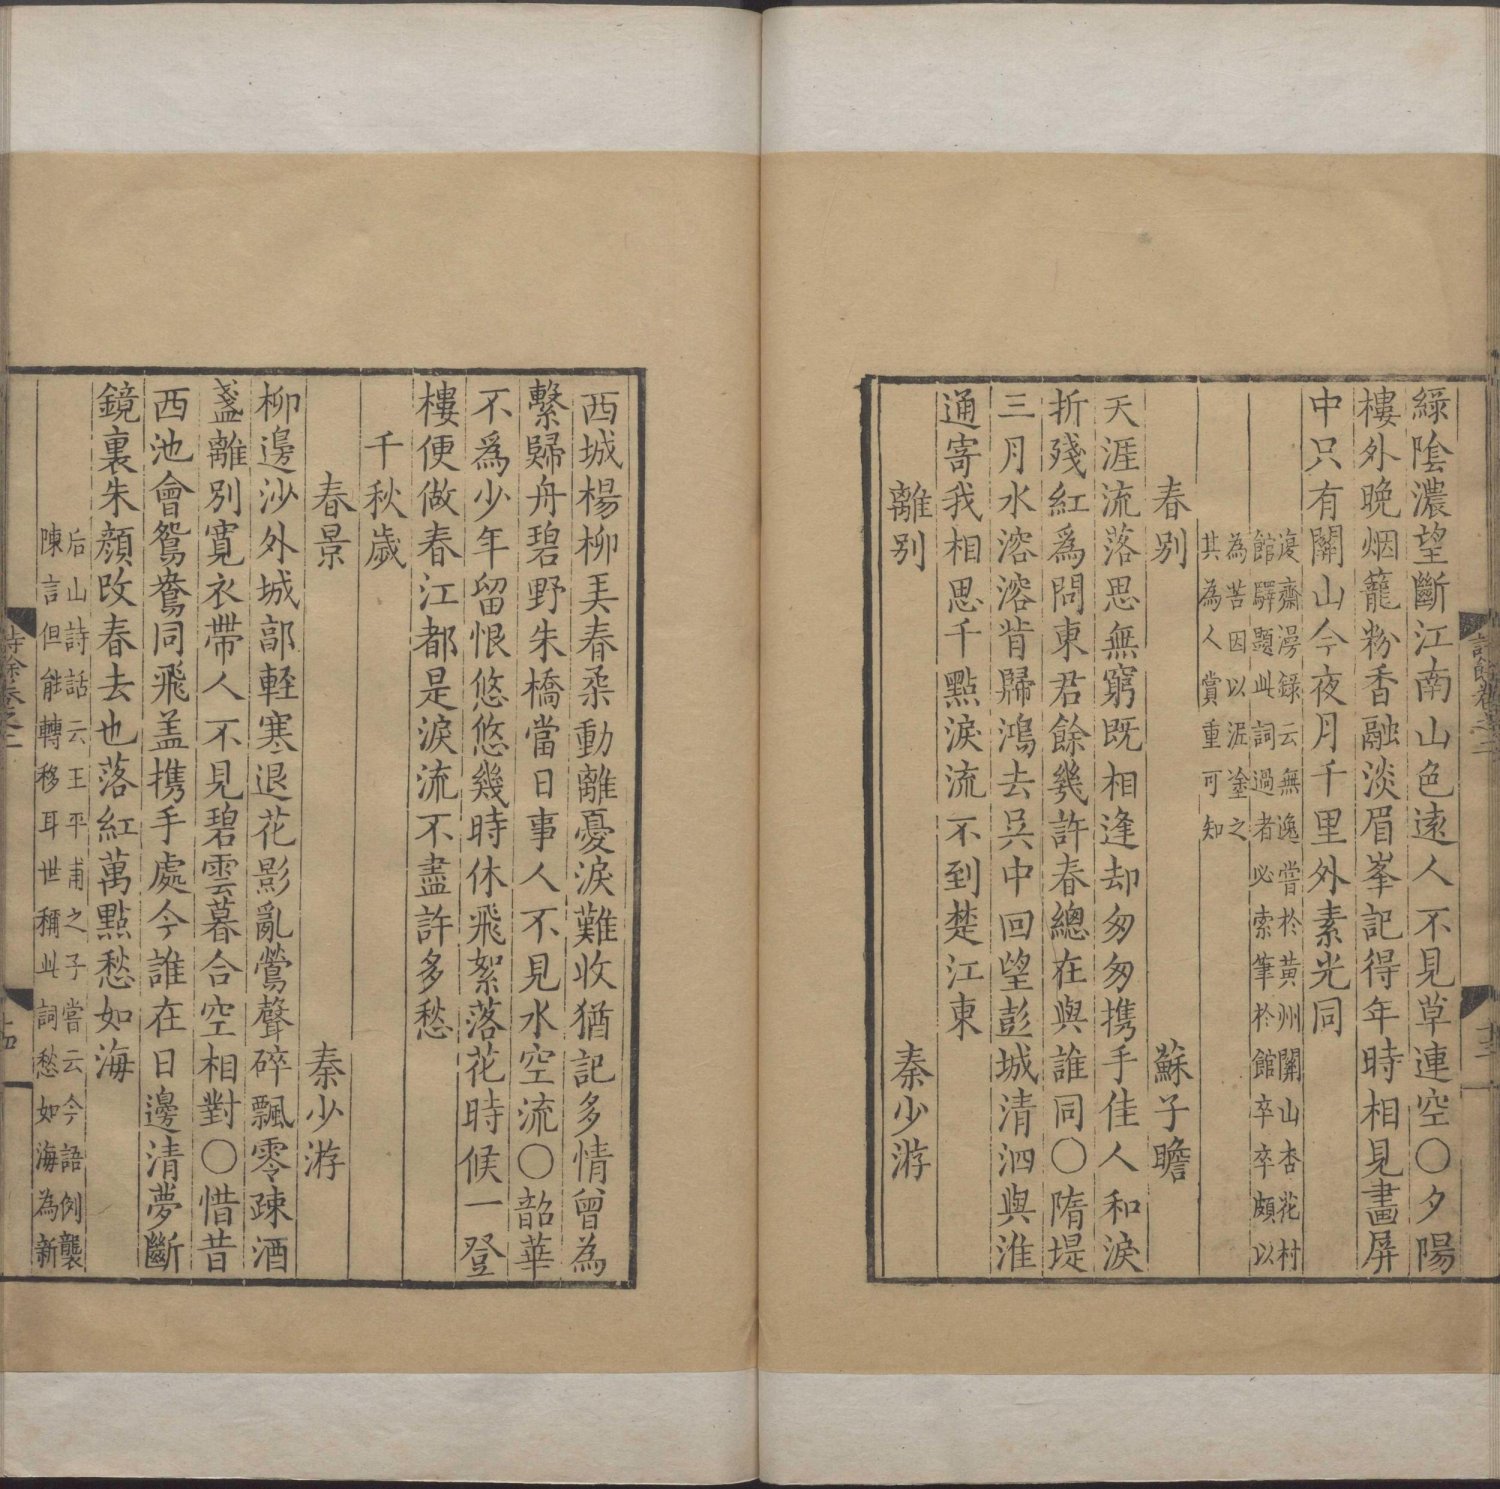 綠陰濃望斷江南山色遠人不見草連空〇夕陽
樓外晚烟籠粉香融淡眉峯記得年時相見畫屏
中只有關山今夜月千里外素光同
渡齋漫錄云無逸嘗於黃州關山杏花村
館驛題此詞過者必索筆於館卒卒頗以
為苦因以泥塗之
其為人賞重可知
春别　蘇子瞻
天涯流落思無窮既相逢却匆匆携手佳人和淚
折殘紅爲問東君餘幾許春總在與誰同〇隋堤
三月水溶溶背歸鴻去吳中回望彭城清泗與淮
通寄我相思千點淚流不到楚江東
離别　秦少游
詩餘卷之二　十三
西城楊柳弄春柔動離憂淚難收猶記多情曾為
繫歸舟碧野朱橋當日事人不見水空流〇韶華
不爲少年留恨悠悠幾時休飛絮落花時候一登
樓便做春江都是淚流不盡許多愁
千秋歲
春景　秦少游
柳邊沙外城郭輕寒退花影亂鶯聲碎飄零疎酒
盞離別寛衣帶人不見碧雲暮合空相對〇惜昔
西池會鴛鴦同飛盖携手處今誰在日邊清夢斷
鏡裏朱顏改春去也落紅萬點愁如海
后山詩話云王平甫之子嘗云今語例襲
陳言但能轉移耳世稱此詞愁如海為新
詩餘卷之二　十四